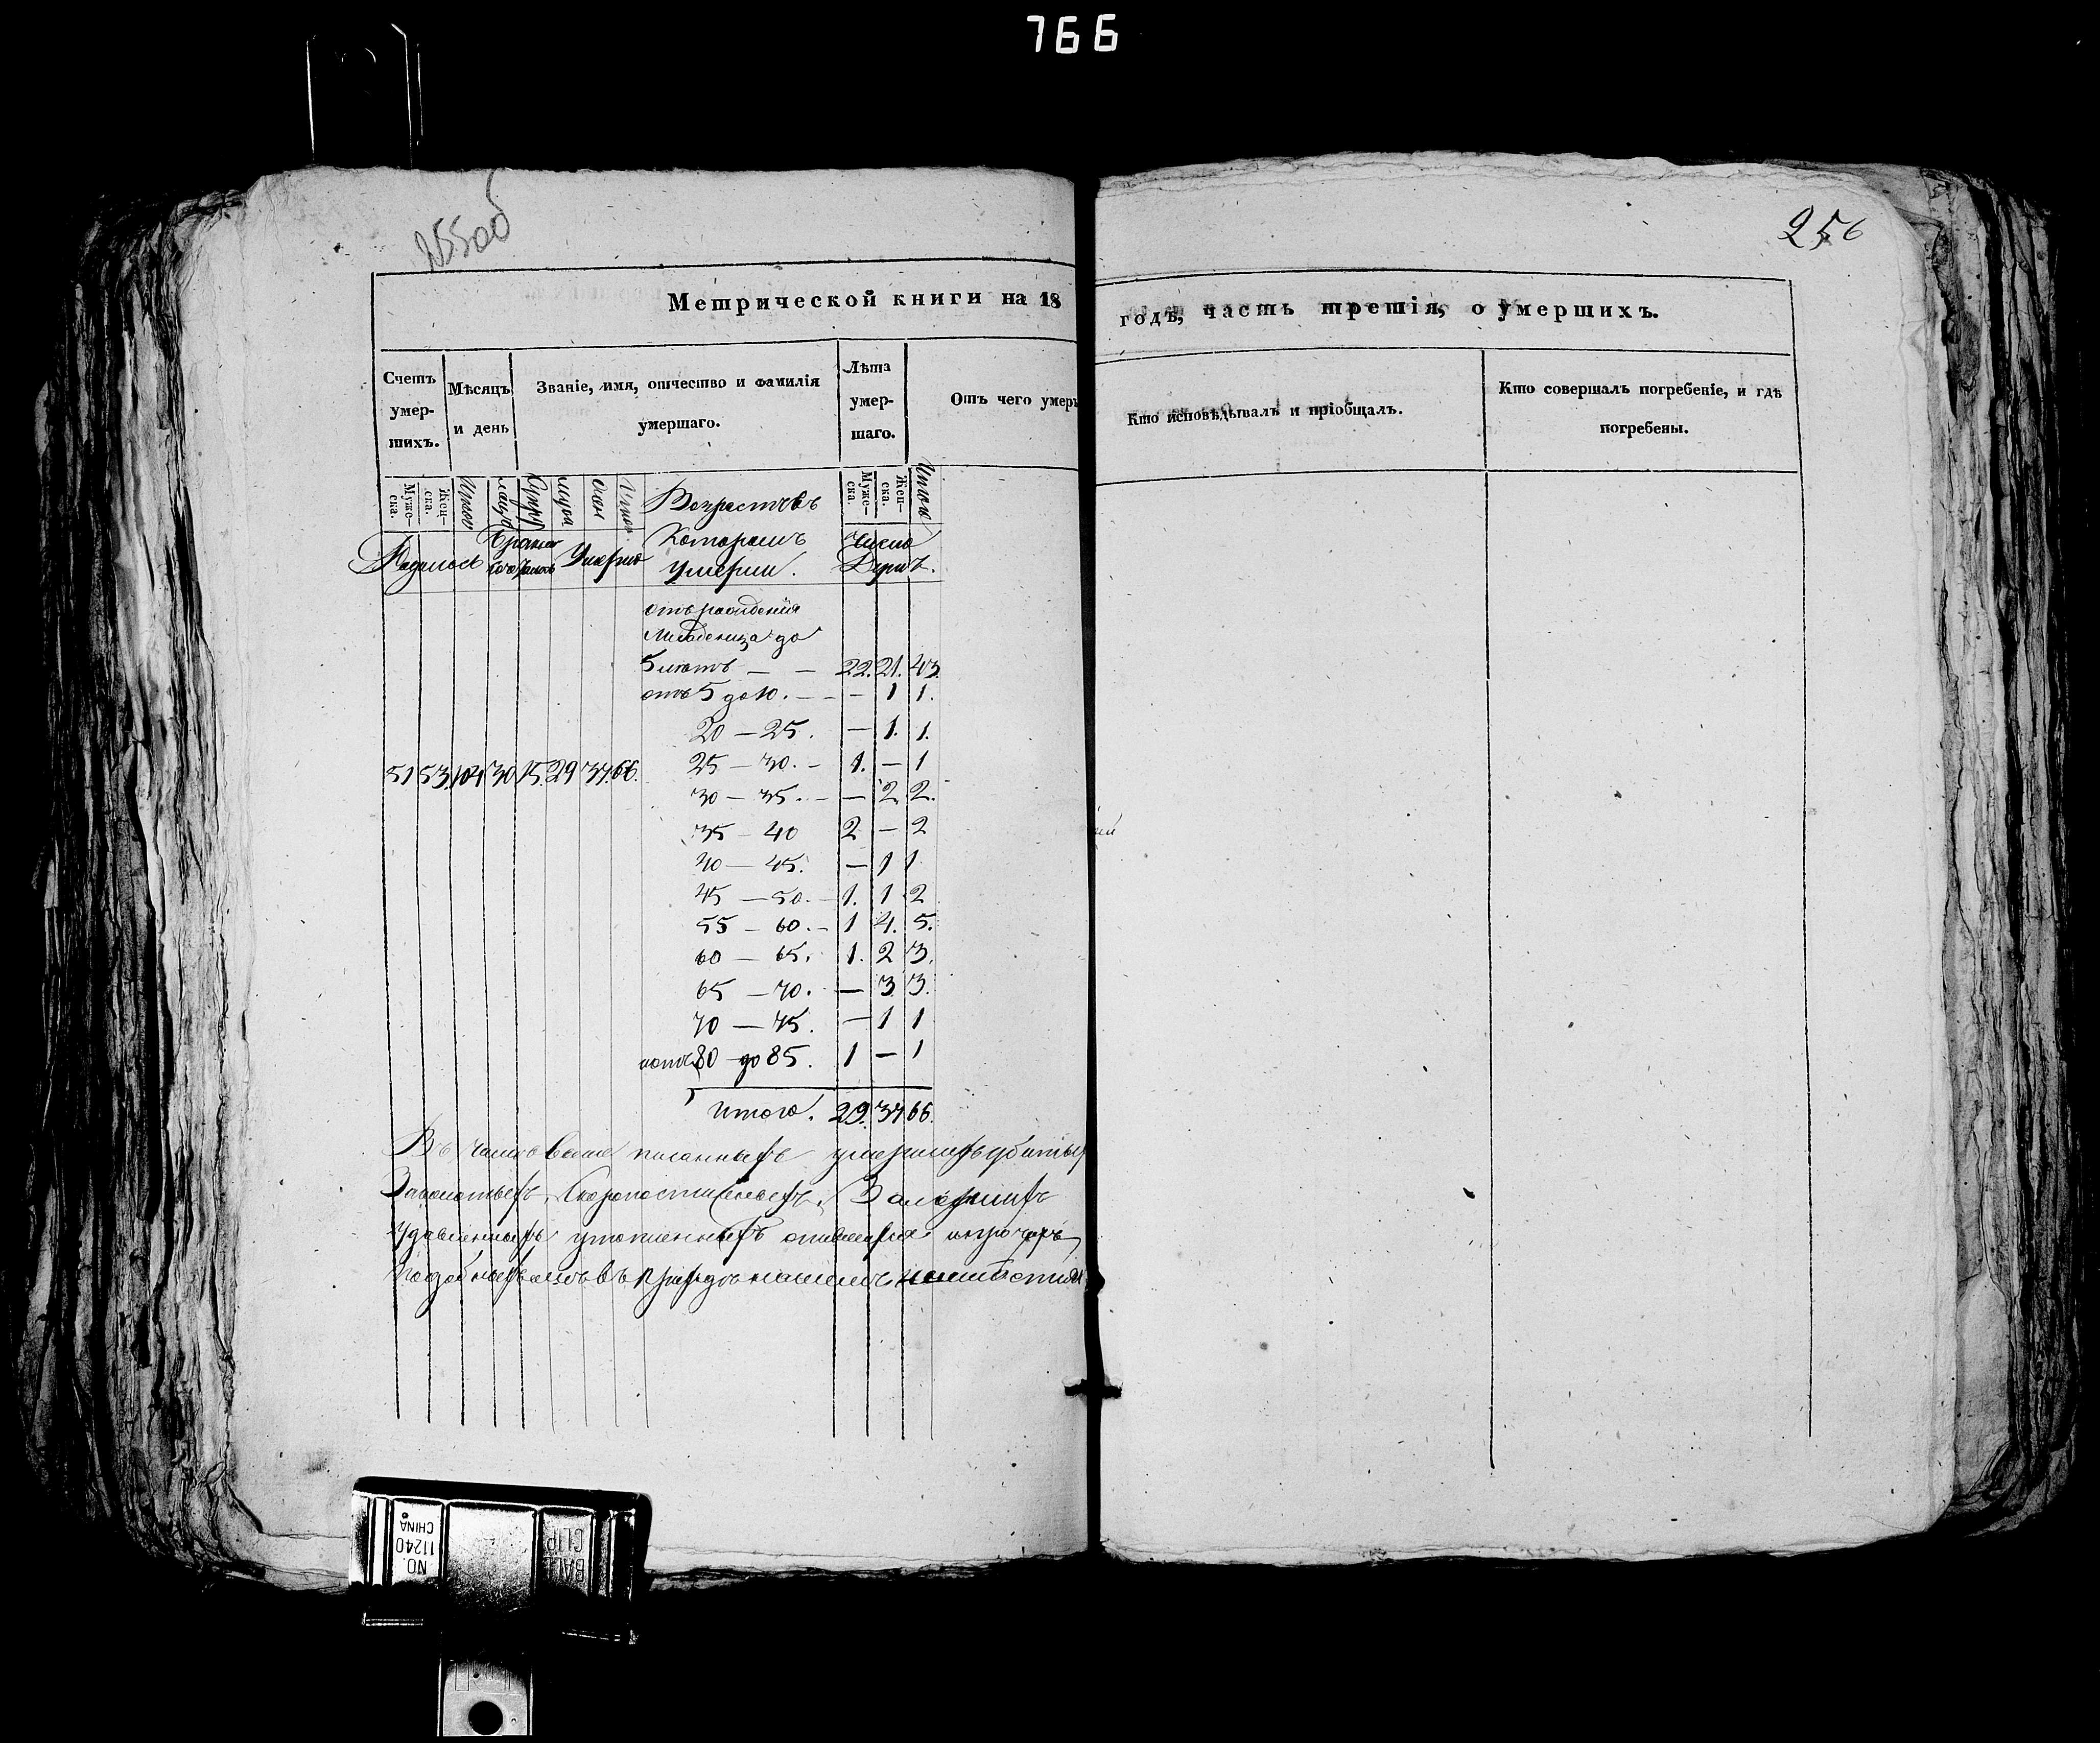 766
255об
256
Метрической книги на 18
годъ, часть третія, о умершихъ.
Счетъ умер-шихъ.
Мѣсяцъ и день
Званіе, имя, отчество и фамилія умершаго.
Лѣта умер-шаго.
Отъ чего умеръ
Кто исповѣдывалъ и пріобщалъ.
Кто совершалъ погребеніе, и гдѣ погребены.
Муже-ска. Жен-ска. Итого
Муже-ска. Жен-ска. Итого
Возрастовъ
Которомъ
умерли.
Число
Душъ.
Родилось
Умерло
отъ рождения
Младенца до
5 лѣтъ — — 22. 21. 43.
отъ 5 до 10. — — — 1 1.
20 — 25. — 1. 1.
25 — 30. — 1. — 1
51 53. 104 30 15. 29 37. 66.
30 — 35. — — 2 2.
35 — 40 2 — 2
40 — 45. — 1 1
45 — 50. — 1. 1 2
55 — 60. — 1 4. 5.
60 — 65. 1. 2 3.
65 — 70. — 3 3.
70 — 75. — 1 1
отъ 80 до 85. 1 — 1
Итого. 29. 37 66.
Въ числѣ выше писанныхъ умершихъ убитых
Скоропостижныхъ,
Удавленныхъ утопленныхъ
NO. 11240 CHINA
BALL CLIP